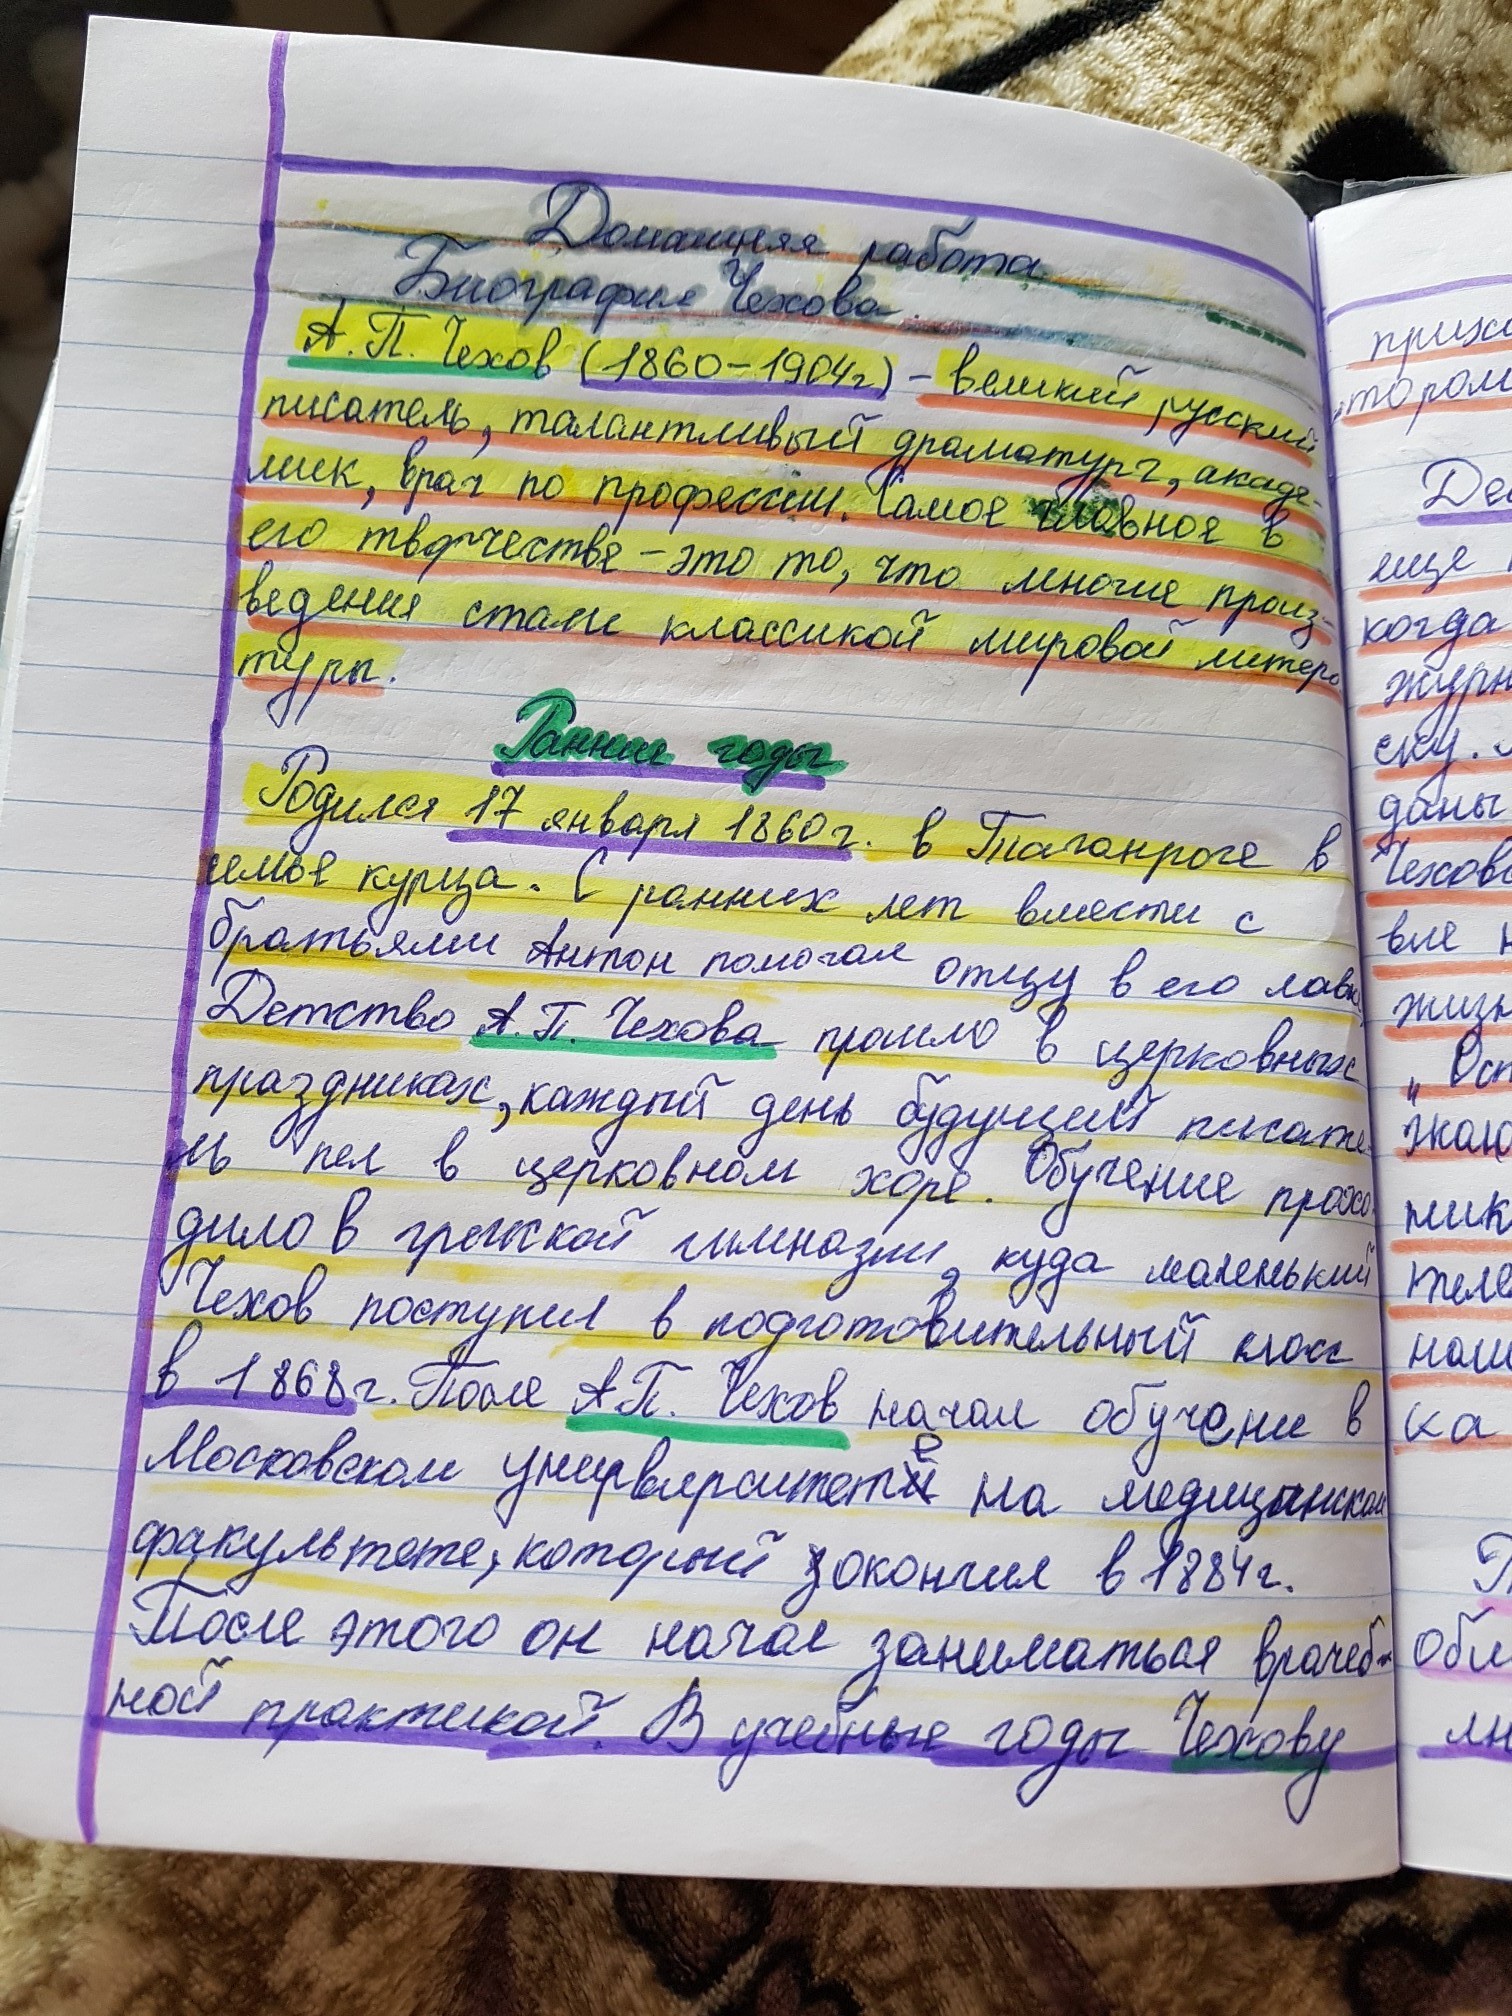 Домашняя работа
Биография Чехова.
А.П. Чехов (1860-1904г) - великий русский
писатель, талантливый драматург, акаде-
мик, врач по профессии. Самое главное в
его творчестве - это то, что многие произ-
ведения стали классикой мировой литера
туры.
Ранние годы
Родился 17 января 1860г. в Таганроге в
семье купца. С ранних лет вмести с
братьями Антон помогал отцу в его лавке
Детство А.П. Чехова прошло в церковных
праздниках, каждый день будущий писате-
ль пел в церковном хоре. Обучение прохо-
дило в греческой гимназии, куда маленький
Чехов поступил в подготовительный класс
в 1868г. После А.П. Чехов начал обучени в
Московском на медицинском
факультете, который закончил в 1884г.
После этого он начал заниматься врачеб-
ной практикой. В учебные годы Чехову
прихо
тором
Дес
еще
когда
журн
ску.
даны
Чехов
вле н
жизн
„Ост
жал
ник
теле
наш
ка
обл